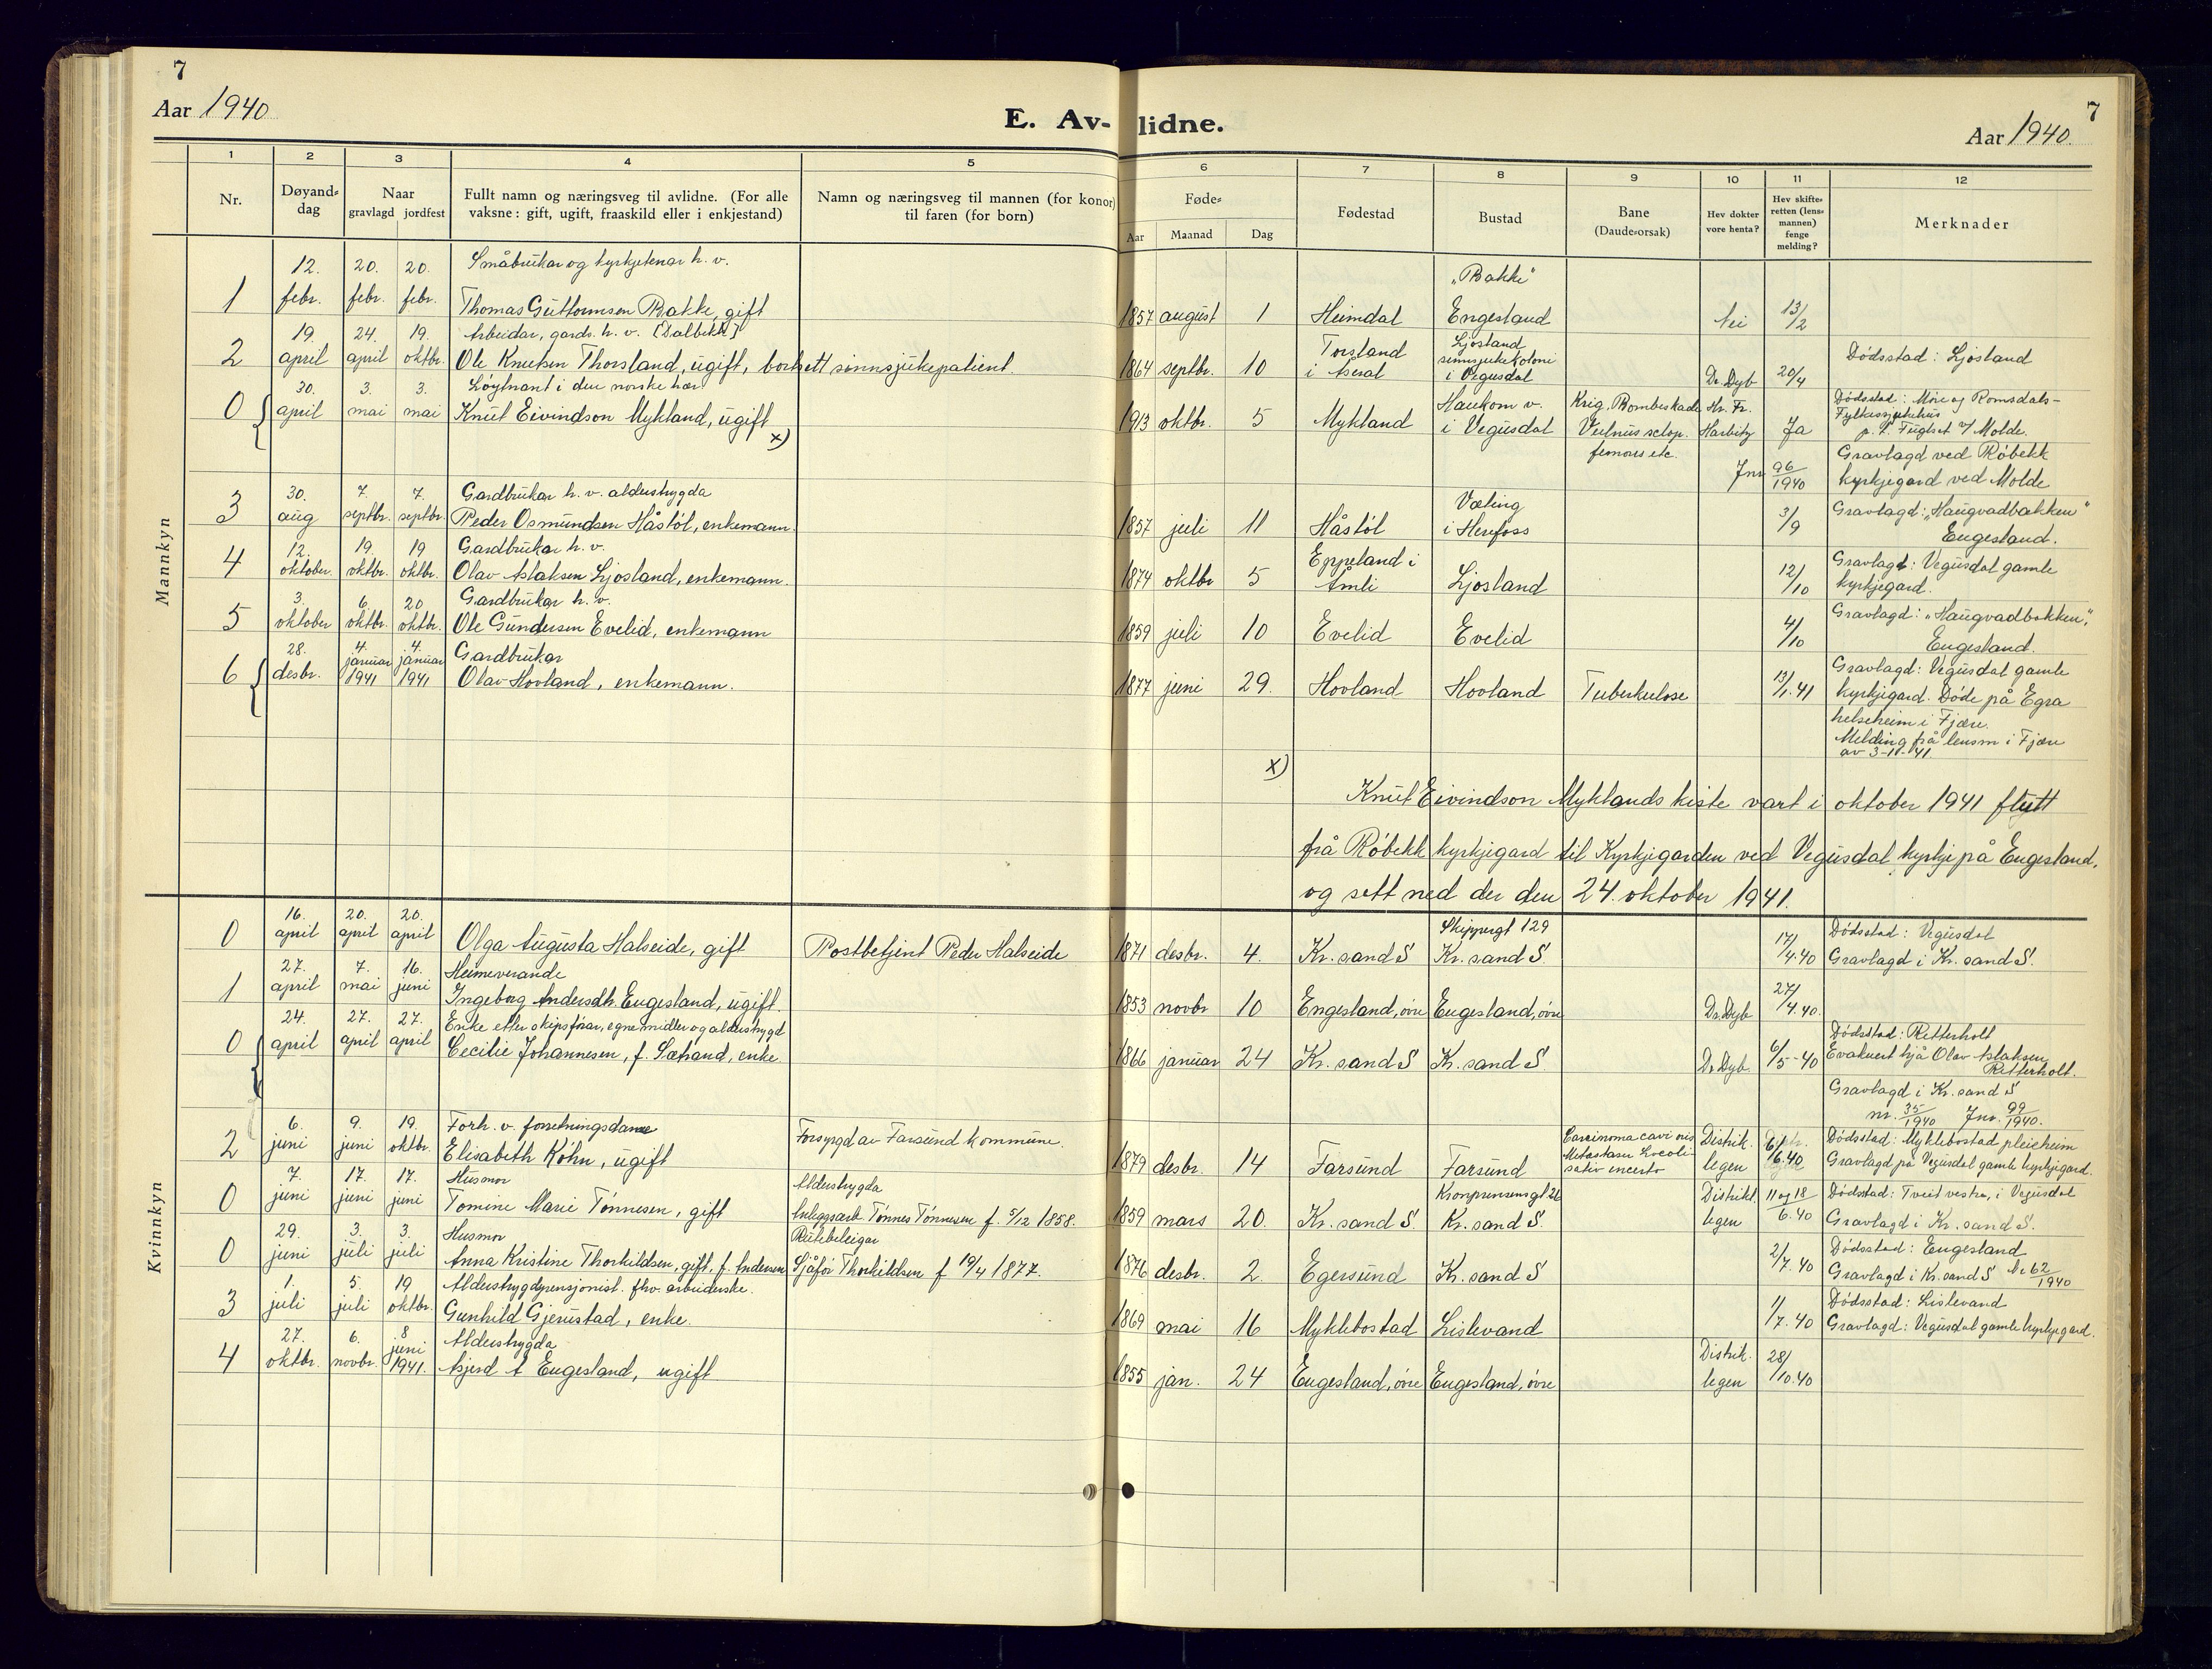 7
7
Aar 1940
E. Av-lidne.
Aar 1940.
1 2 3 4 5 6 7 8 9 10 11 12
Nr.
Døyand-dag
Naar gravlagd jordfest
Fullt namn og næringsveg til avlidne. (For alle vaksne: gift, ugift, fraaskild eller i enkjestand)
Namn og næringsveg til mannen (for konor) til faren (for born)
Føde-
Aar Maanad Dag
Fødestad
Bustad
Bane (Daude-orsak)
Hev dokter vore henta?
Hev skifte-retten (lens-mannen) fenge melding?
Merknader
Mannkyn
12. 20. 20. Småbrukar og kyrkjetenar h. v. "Bakke"
1 febr. febr. febr. Thomas Guttormsen Bakke, gift 1857 august 1 Heimdal Engesland Nei 13/2
19. 24. 19. Arbeidar, gards. h. v. [Dalbekk] Torsland Ljosland sinnsjukekoloni
2 april april oktbr. Ole Knutsen Thorsland, ugift, bortsett sinnsjukepatient. 1864 septbr. 10 i Åseral i Vegusdal Dr. Dyb 20/4 Dødsstad: Ljosland
30. 3. 3. Løytnant i den norske hær Haukom v. Krig. Bombeskade Kr. Fr. Dødsstad: Møre og Romsdals-
0 april mai mai Knut Eivindson Mykland, ugift x) 1913 oktbr. 5 Mykland i Vegusdal Vulnus sclop. femoris etc. Harbitz Ja Fylkessjukehus p. t. Fuglset v/ Molde.
Jnr 96/1940 Gravlagd ved Røbekk kyrkjegard ved Molde
30. 7. 7. Gardbrukar h. v. alderstrygda Væting
3 aug septbr. septbr. Peder Osmundsen Håstøl, enkemann. 1857 juli 11 Håstøl i Herefoss 3/9 Gravlagd: "Haugvadbakken" Engesland.
12. 19. 19 Gardbrukar h. v. Eppeland i
4 oktober. oktbr. oktbr. Olav Aslaksen Ljosland, enkemann. 1874 oktbr 5 Åmli Ljosland 12/10 Gravlagt: Vegusdal gamle kyrkjegard.
3. 6. 20 Gardbrukar h. v.
5 oktober oktbr. oktbr. Ole Gundersen Evelid, enkemann 1859 juli 10 Evelid Evelid 4/10 Gravlagd: "Haugvadbakken", Engesland.
28. 4. 4. Gardbrukar
6 desbr. januar 1941 januar 1941 Olav Hovland, enkemann. 1877 juni 29. Hovland Hovland Tuberkulose 13/1.41 Gravlagd: Vegusdal gamle kyrkjegard. Døde på Egra
helseheim i Fjære.
Melding frå lensm i Fjære
av 3-1-41.
x)
Knut Eivindson Myklands kiste vart i oktober 1941 flytt
frå Røbekk kyrkjegard til Kyrkjegarden ved Vegusdal kyrkje på Engesland,
og sett ned der den 24. oktober 1941.
Kvinnkyn
16. 20. 20. Skippergt 129
0 april april april Olga Augusta Halseide, gift Postbetjent Peder Halseide 1871 desbr. 4. Kr. sand S Kr. sand S. 17/4.40 Dødsstad: Vegusdal Gravlagd i Kr. sand S.
27. 7. 16. Heimeverande
1 april mai juni Ingeborg Andersdtr. Engesland, ugift. 1853 novbr 10 Engesland, øvre Engesland, øvre Dr. Dyb 27/4.40.
24. 27. 27. Enke etter skipsførar, egne midler og alderstrygd
0 april april april Cecilie Johannesen, f. Sætrand, enke. 1866 januar 24 Kr. sand S Kr. sand S. Dr. Dyb. 6/5-40 Dødsstad: Retterholt
Evakuert hjå Olav Aslaksen Retterholt.
Gravlagd i Kr. sand S
nr. 35/1940 Jnr. 99/1940.
6. 9. 19. Forh. v. forretningsdame Forsyrgd av Farsund kommune.
2 juni juni oktbr. Elisabeth Køhn, ugift 1879 desbr. 14 Farsund Farsund Carcinoma cavi oris Metastaser Distrikt.legen 6.40 Dødsstad: Myklebostad pleieheim Gravlagd på Vegusdal gamle kyrkjegard.
7. 17. 17. Husmor Alderstrygda Kronprinsensgt 26
0 juni juni juni Tomine Marie Tønnesen, gift Anleggsarb. Tønnes Tønnesen f. 5/12 1858. 1859 mars 20. Kr. sand S. Kr. sand S. Distrikt.legen 11 og 18/6.40 Dødsstad: Tveit vestre, i Vegusdal Gravlagd i Kr. sand S.
29. 3. 3. Husmor Rutebileigar
0 juni juli juli Anna Kristine Thorkildsen, gift, f. Andersen Sjåfør Thorkildsen f 19/4 1877. 1876 desbr. 2. Egersund Kr. sand S 2/7.40 Dødsstad: Engesland Gravlagd i Kr. sand S Nr 62/1940
1. 5. 19 Alderstrygdpensjonist. fhv. arbeiderske.
3 juli juli oktbr. Gunhild Gjerustad, enke. 1869 mai 16 Myklebostad Lislevand 1/7.40 Dødsstad: Lislevand Gravlagd: Vegusdal gamle kyrkjegard.
27. 6. 8 Alderstrygda
4 oktbr. novbr. juni 1941. Asjerd A Engesland, ugift 1855 jan. 24 Engesland, øvre Engesland, øvre Distrikt.legen 28/10.40